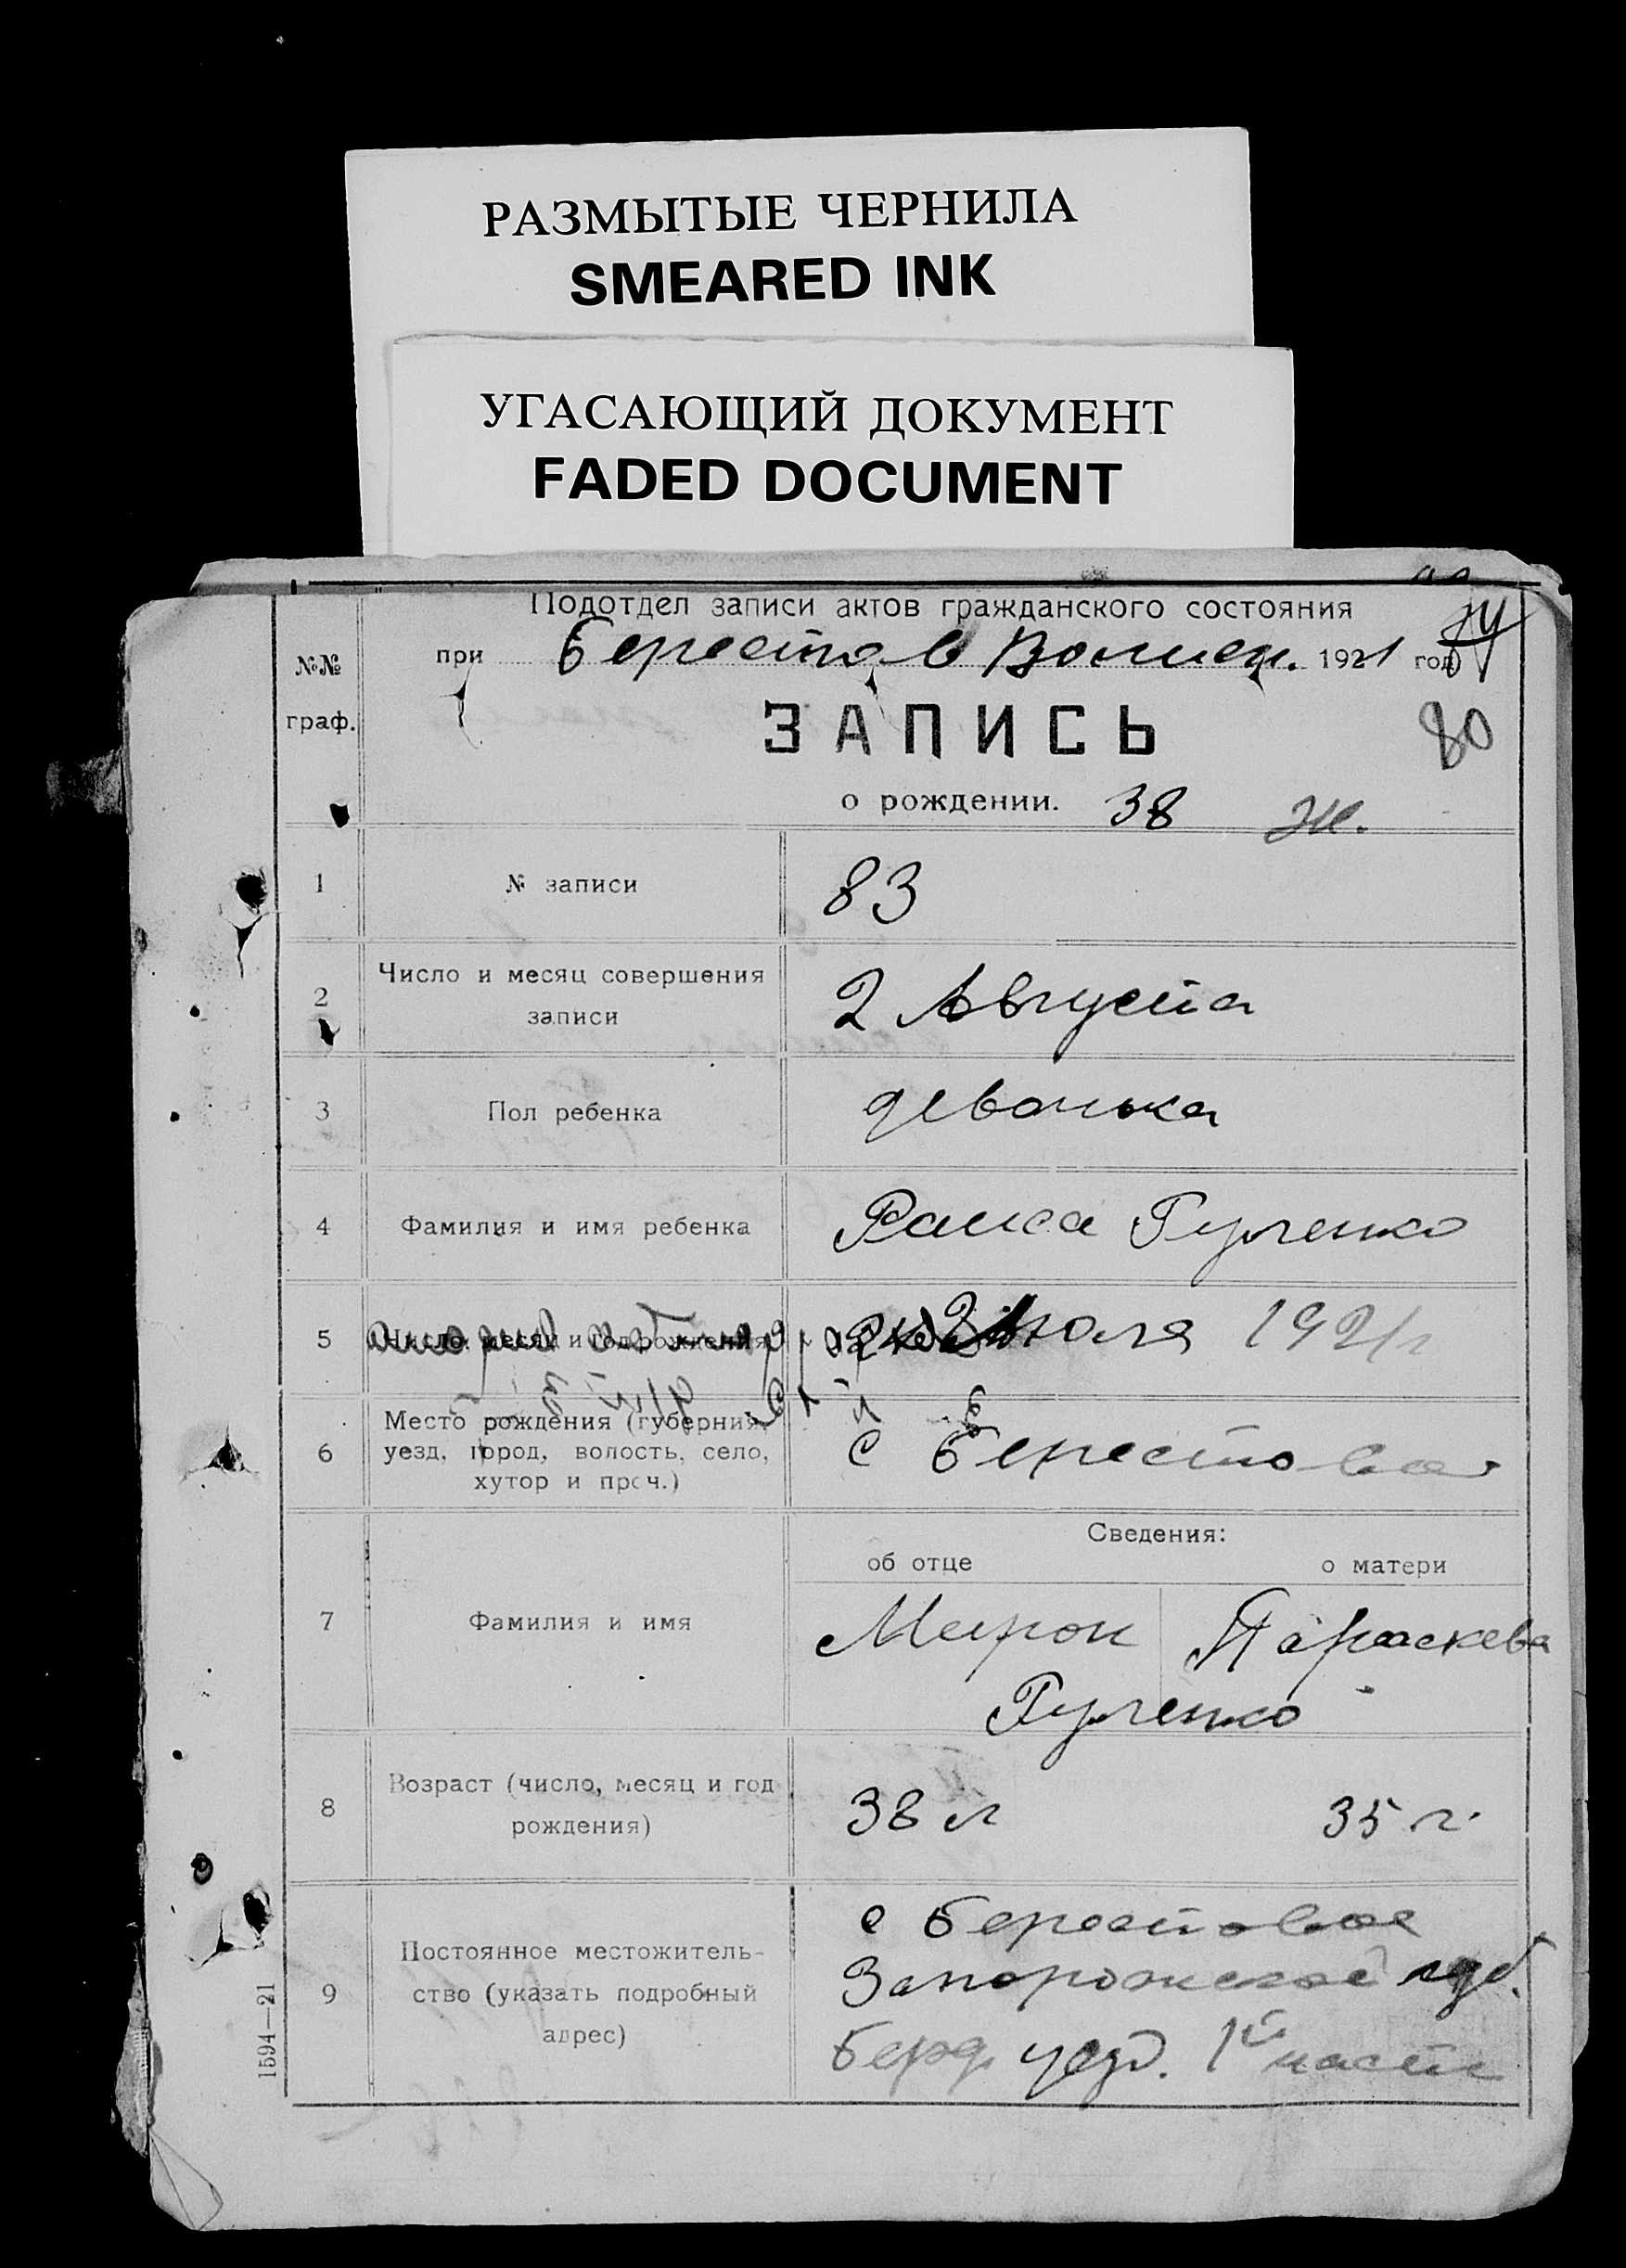 РАЗМЫТЫЕ ЧЕРНИЛА
SMEARED INK
УГАСАЮЩИЙ ДОКУМЕНТ
FADED DOCUMENT
Подотдел записи актов гражданского состояния
№№ граф.
при Берестов Волисп. 1921 год
ЗАПИСЬ
80
о рождении. 38 Ж.
1 № записи 83
2 Число и месяц совершения записи 2 Августа
3 Пол ребенка девочка
4 Фамилия и имя ребенка Раиса Гуленко
5 Число, месяц и год рождения Июля 1921 г
6 Место рождения (губерния, уезд, город, волость, село, хутор и проч.) с Берестовое
Сведения:
об отце о матери
7 Фамилия и имя Мирон Параскева
Гуленко
8 Возраст (число, месяц и год рождения) 38 л 35 г.
9 Постоянное местожитель-
ство (указать подробный
адрес)
с Берестовое
Запорожской губ.
Берд. уезд. 1й части
1594—21